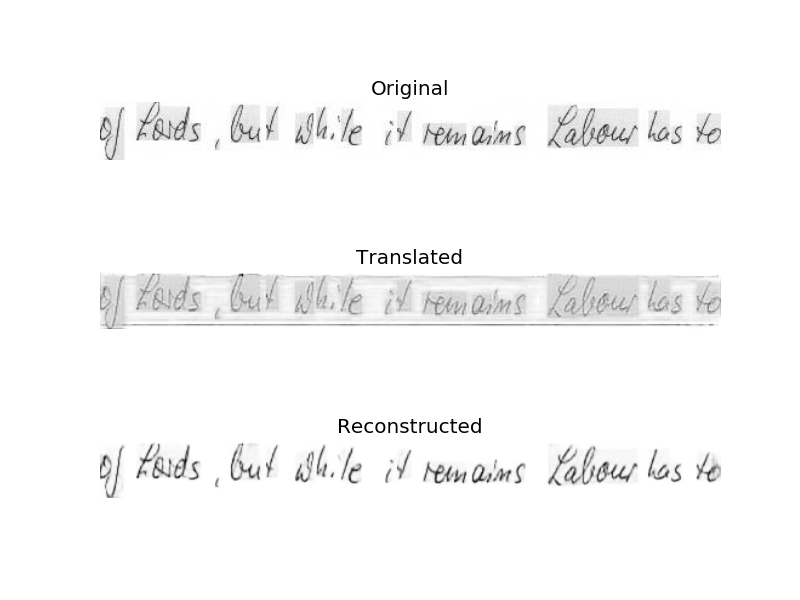 Original
of Lords, but while it remains Labour has to
Translated
of Lords, but while it remains Labour has to
Reconstructed
of Lords, but while it remains Labour has to